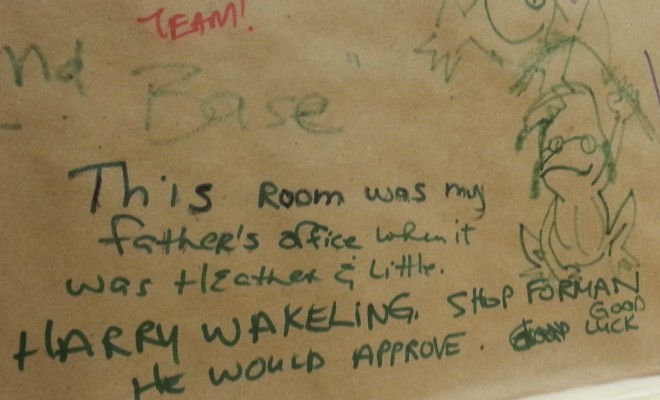 TEAM!
nd
Base "
This Room was my
father's office when it
was Heather & Little.
HARRY WAKELING. SHOP FORMAN
HE WOULD APPROVE. GOOD
LUCK